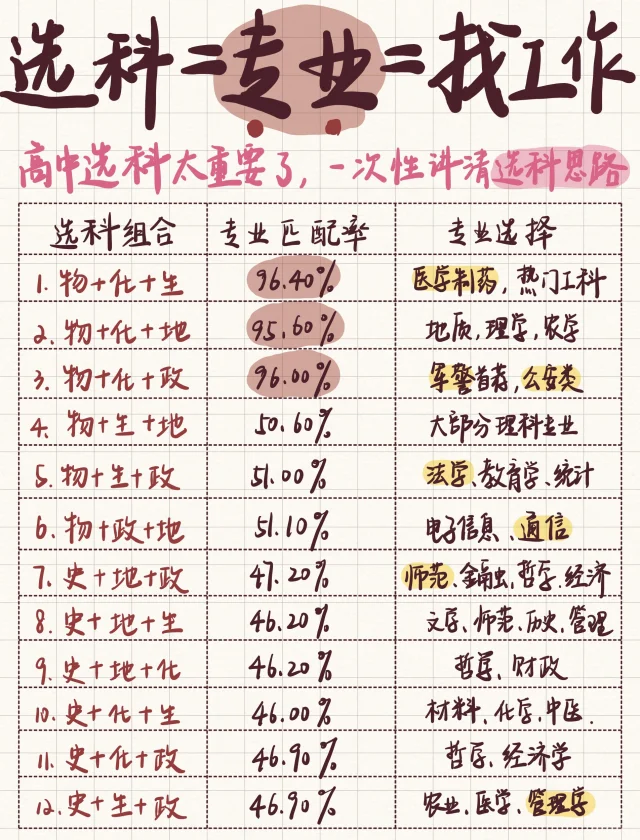 选科=专业=找工作
高中选科太重要了,一次性讲清选科思路
选科组合 专业匹配率 专业选择
1. 物+化+生 96.40% 医学制药,热门工科
2. 物+化+地 95.60% 地质,理学,农学
3. 物+化+政 96.00% 军警首荐,公安类
4. 物+生+地 50.60% 大部分理科专业
5. 物+生+政 51.00% 法学、教育学、统计
6. 物+政+地 51.10% 电子信息、通信
7. 史+地+政 47.20% 师范、金融,哲学、经济
8. 史+地+生 46.20% 文学、师范、历史、管理
9. 史+地+化 46.20% 哲学、财政
10. 史+化+生 46.00% 材料、化学、中医.
11. 史+化+政 46.90% 哲学、经济学
12. 史+生+政 46.90% 农业、医学、管理学